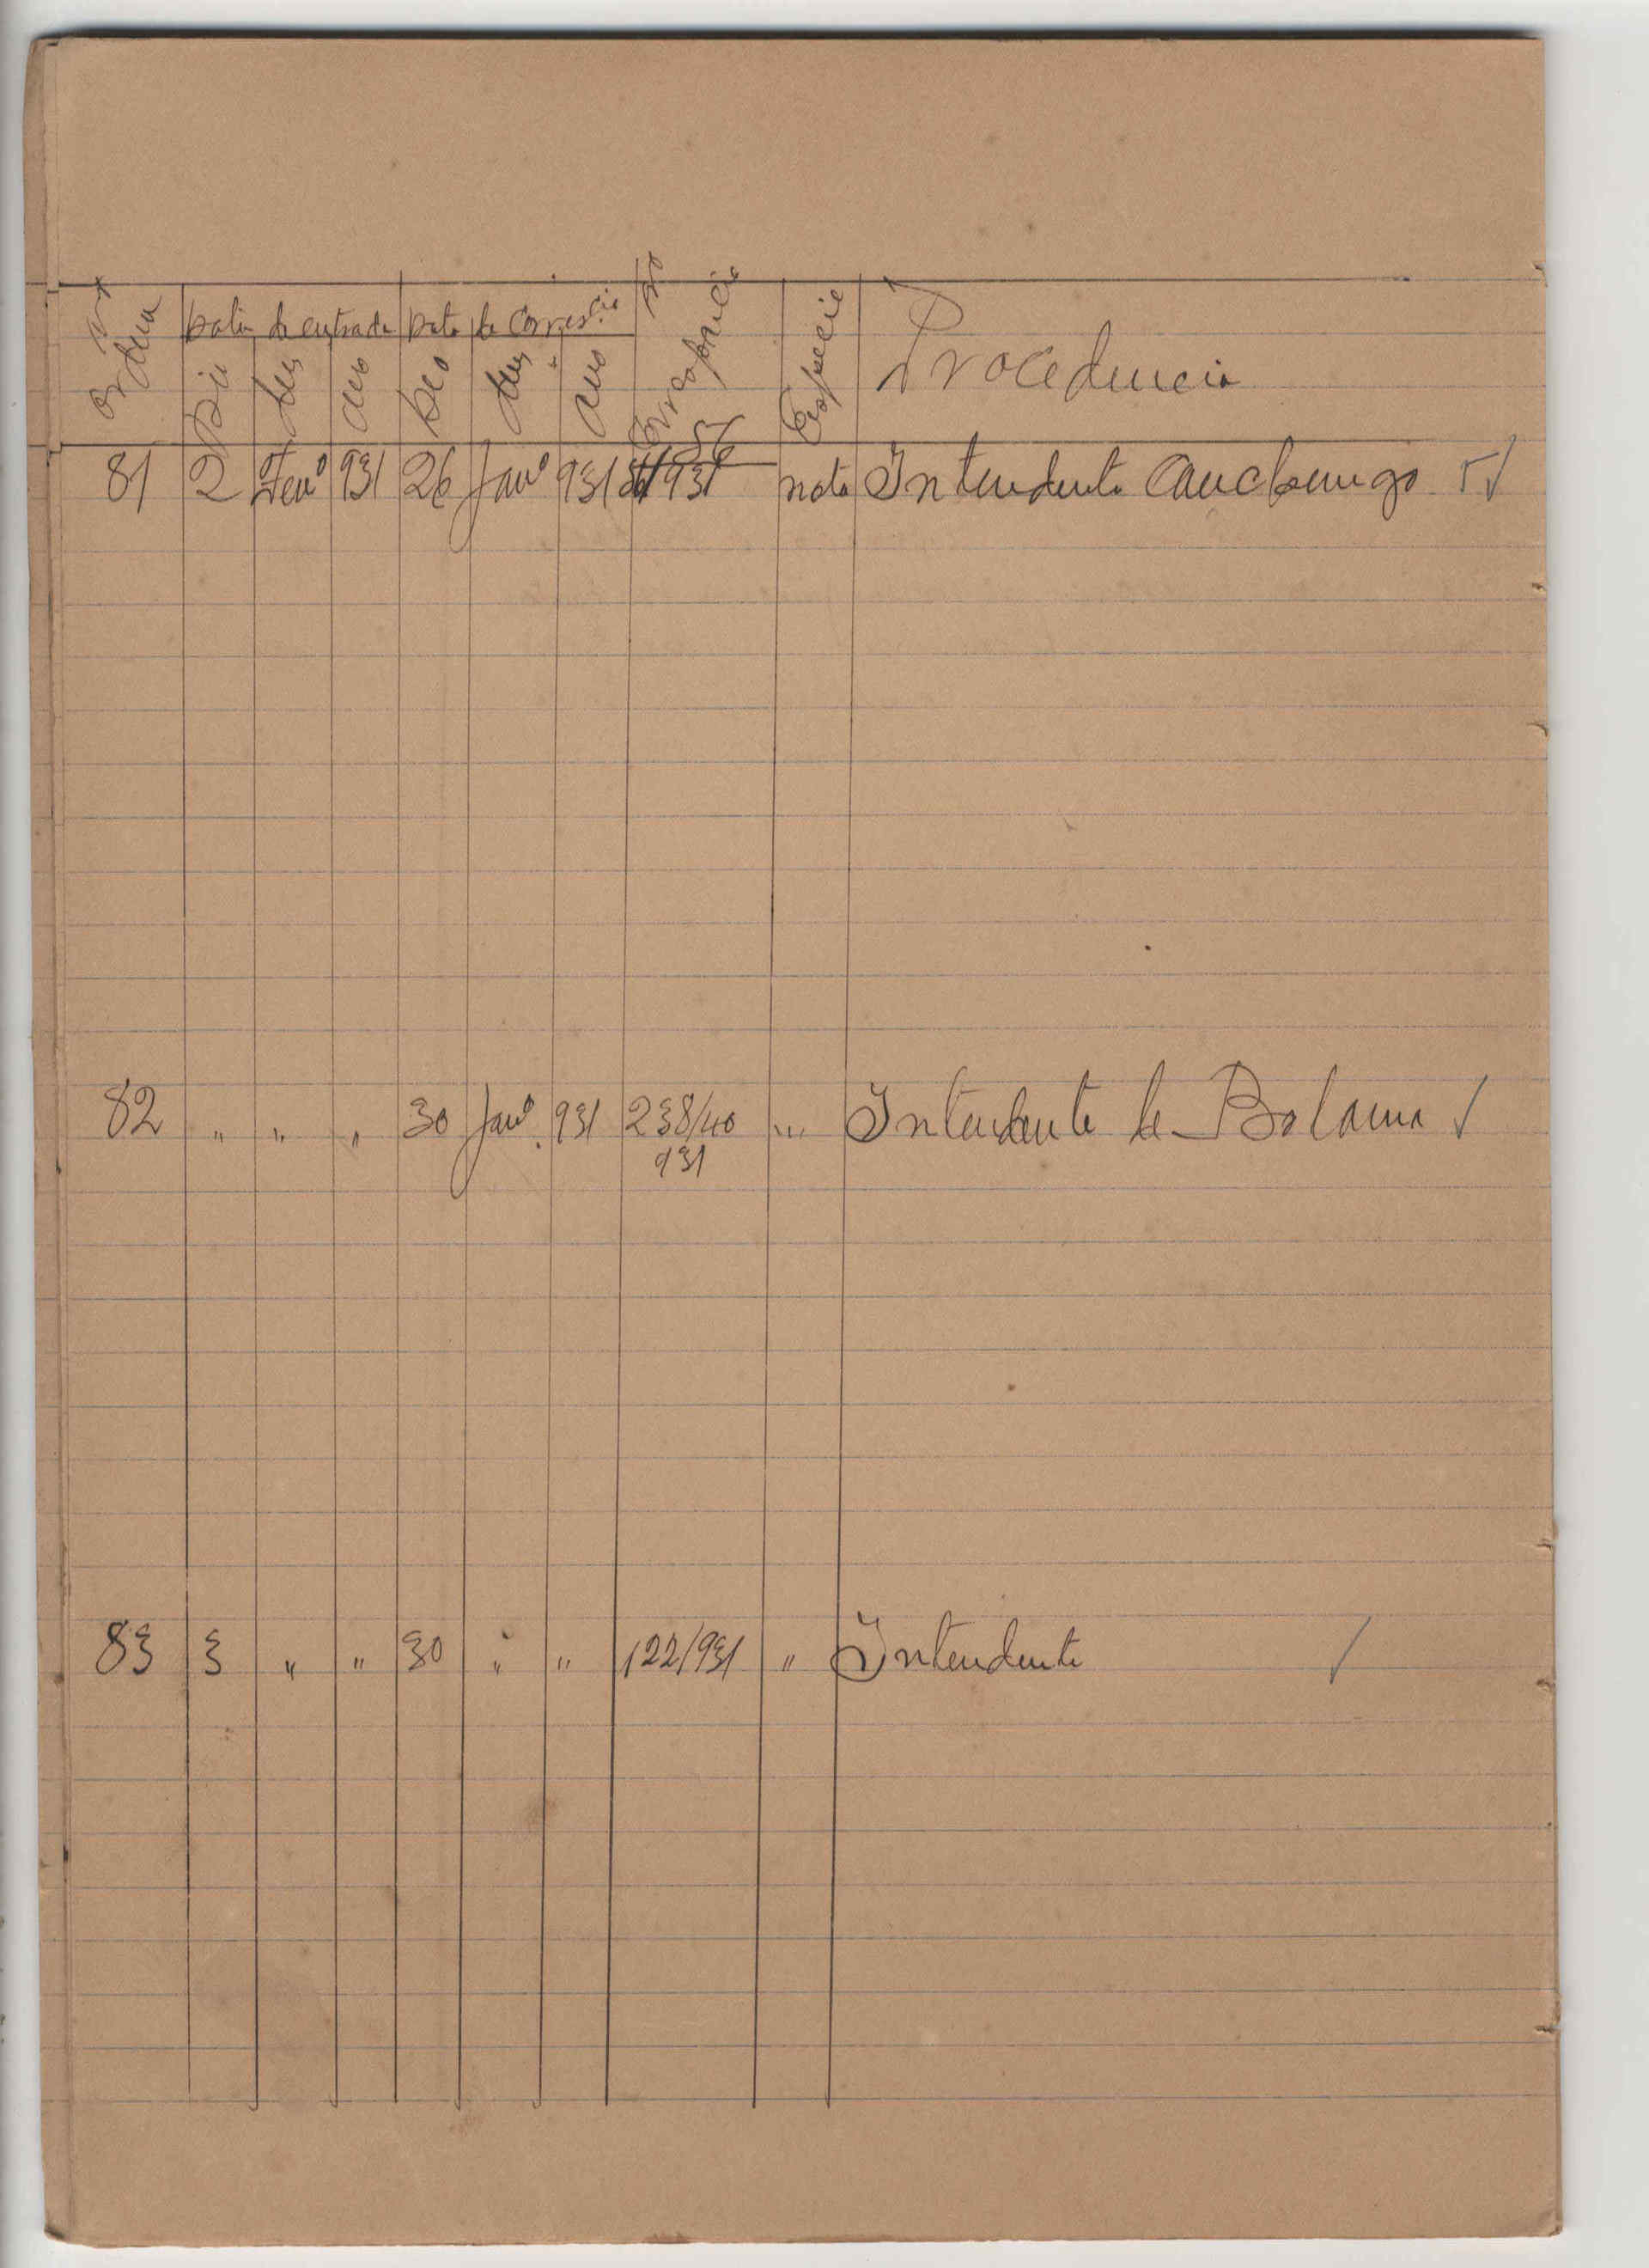 Nº Ordem
Data de entrada Data de Corresp.cia
Dia Mês ano Dia Mês ano
Nº Correspª
Especie
Procedencia
81 2 Fevº 931 26 Janº 931 931 nota Intendente Canchungo
82 " " " 30 Janº 931 238/40 " Intendente de Bolama
931
83 3 " " 30 " " 122/931 " Intendente